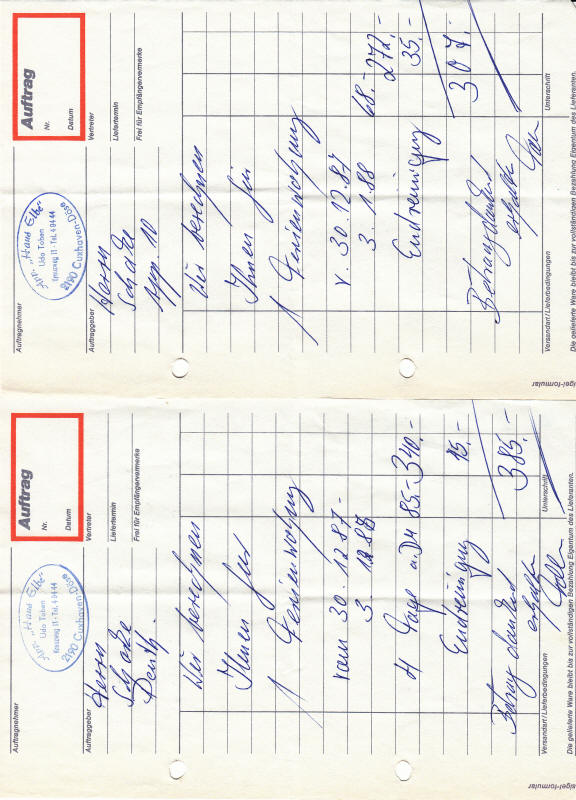 Auftragnehmer
App. "Haus Elbe"
Udo Toben
2190 Cuxhaven-Döse
Auftrag
Nr.
Datum
Auftraggeber
Herrn
Schade
App. 10
Vertreter
Liefertermin
Frei für Empfängervermerke
Wir berechnen
Ihnen für
1 Ferienwohung
v. 30.12.87
3. 1.88 68.- 272.-
Endreinigung 35.-
307.-
Betrag dankend
erhalten
Versandart/Lieferbedingungen
Unterschrift
Die gelieferte Ware bleibt bis zur vollständigen Bezahlung Eigentum des Lieferanten.
sigel-formular
Auftragnehmer
App. "Haus Elbe"
Udo Toben
2190 Cuxhaven-Döse
Auftrag
Nr.
Datum
Auftraggeber
Herrn
Schade
Vertreter
Liefertermin
Frei für Empfängervermerke
Wir berechnen
Ihnen für
1 Ferienwohung
vom 30.12.87-
3. 1.88
4 Tage a. DM 85.- 340.-
Endreinigung 45.-
385.-
Betrag dankend
erhalten
Versandart/Lieferbedingungen
Unterschrift
Die gelieferte Ware bleibt bis zur vollständigen Bezahlung Eigentum des Lieferanten.
sigel-formular